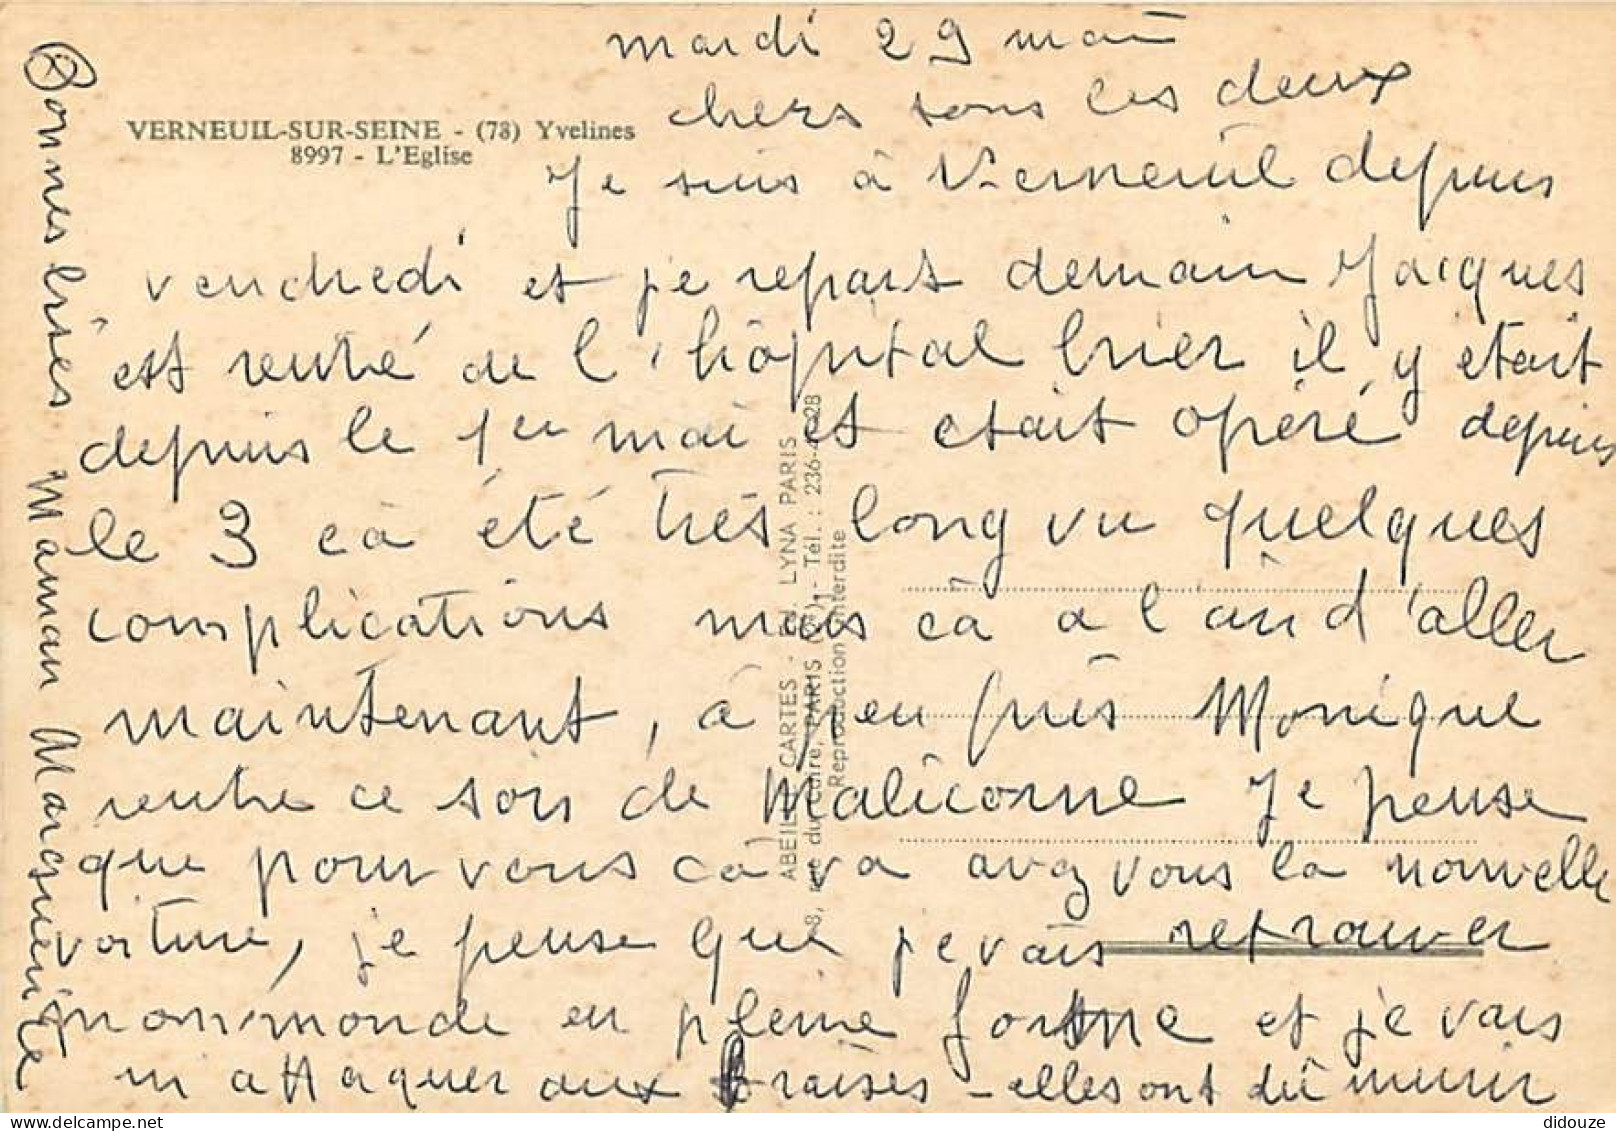 mardi 29 mai
chers tous les deux
VERNEUIL-SUR-SEINE - (78) Yvelines
8997 - L'Eglise
Je suis à Verneuil depuis
vendredi et je repars demain Jacques
est rentré de l'hôpital hier il y etait
depuis le 1er mai et etait opéré depuis
le 3 cà été très long vu quelques
complications mais cà a l'air d'aller
maintenant, à peu près Monique
rentre ce soir de Malicorne Je pense
que pour vous cà va avez vous la nouvelle
voiture, je pense que je vais retrouver
mon monde en pleine forme et je vais
m'attaquer aux fraises - elles ont dû murir
Bonnes bises Maman Marguerite
ABEILLE CARTES - Ed. LYNA PARIS
8, rue du Caire, PARIS - Tél. : 236-41-28
Reproduction interdite
didouze